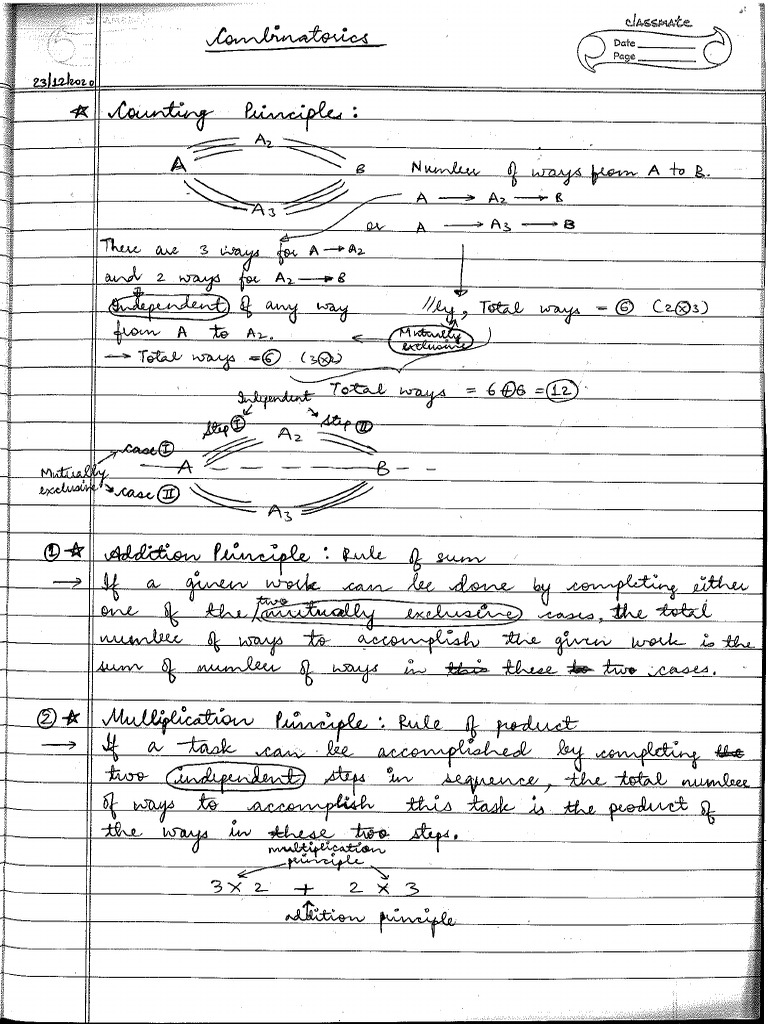 classmate
Date
Page
Combinatorics
23/12/2020
☆ Counting Principles:
A2
A B
A3
Number of ways from A to B.
A → A2 → B
or A → A3 → B
There are 3 ways for A → A2
and 2 ways for A2 → B
Independent of any way
from A to A2.
→ Total ways = 6 (3×2)
//ly, Total ways = 6 (2×3)
Mutually
exclusive
Total ways = 6+6 = 12
Independent
Step I
Step II
A2
case I
A B
Mutually
exclusive
case II
A3
① ☆ Addition Principle: Rule of sum
→ If a given work can be done by completing either
one of the two mutually exclusive cases, the total
number of ways to accomplish the given work is the
sum of number of ways in this these to two cases.
② ☆ Multiplication Principle: Rule of product
→ If a task can be accomplished by completing the
two independent steps in sequence, the total number
of ways to accomplish this task is the product of
the ways in these two steps.
multiplication
principle
3 × 2 + 2 × 3
addition principle